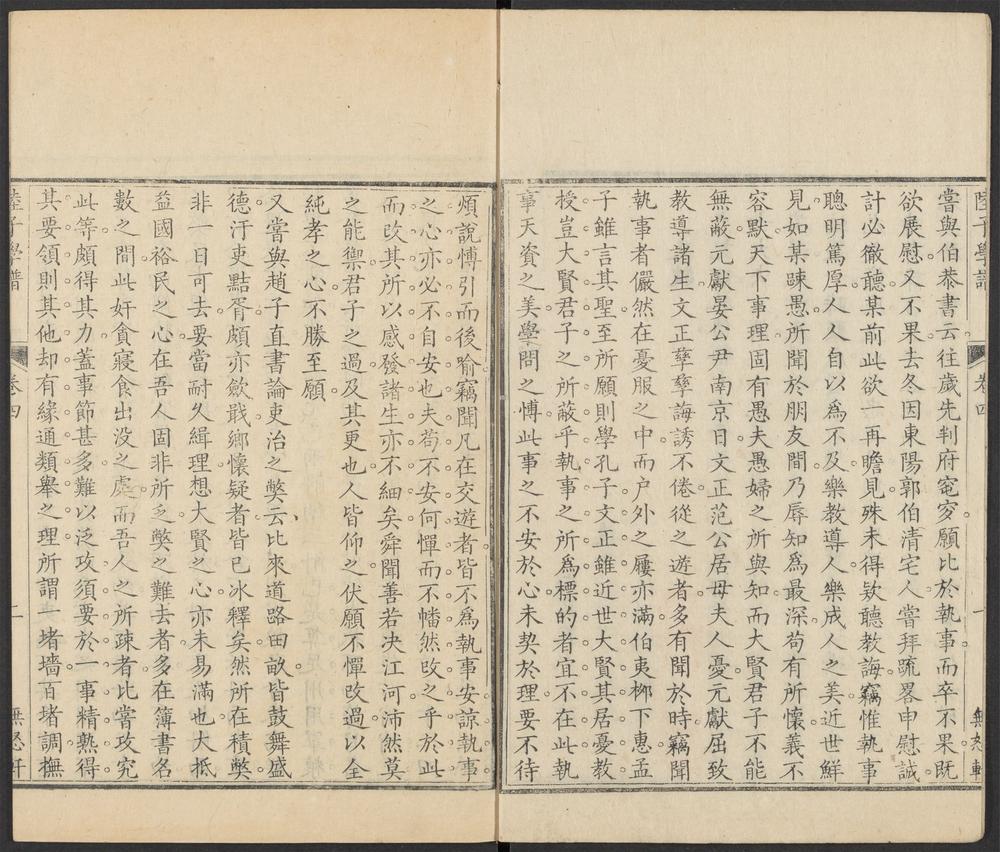 陸子學譜
卷四
一
無怒軒
嘗與伯恭書云往歲先判府窀穸願比於執事而卒不果既
欲展慰又不果去冬因東陽郭伯清宅人嘗拜疏畧申慰誠
計必徹聽某前此欲一再瞻見殊未得欵聽教誨竊惟執事
聰明篤厚人人自以爲不及樂教導人樂成人之美近世鮮
見如某踈愚所聞於朋友間乃辱知爲最深苟有所懷義不
容默天下事理固有愚夫愚婦之所與知而大賢君子不能
無蔽元獻晏公尹南京日文正范公居母夫人憂元獻屈致
教導諸生文正孳孳誨誘不倦從之遊者多有聞於時竊聞
執事者儼然在憂服之中而户外之屨亦滿伯夷栁下惠孟
子雖言其聖至所願則學孔子文正雖近世大賢其居憂教
授豈大賢君子之所蔽乎執事之所爲標的者宜不在此執
事天資之美學問之愽此事之不安於心未契於理要不待
煩說愽引而後喻竊聞凡在交遊者皆不爲執事安諒執事
之心亦必不自安也夫苟不安何憚而不幡然改之乎於此
而改其所以感發諸生亦不細矣舜聞善若决江河沛然莫
之能禦君子之過及其更也人皆仰之伏願不憚改過以全
純孝之心不勝至願
又嘗與趙子直書論吏治之獘云比來道路田畝皆鼓舞盛
德汙吏黠胥頗亦歛戢鄉懷疑者皆已冰釋矣然所在積獘
非一日可去要當耐久緝理想大賢之心亦未易滿也大抵
益國裕民之心在吾人固非所乏獘之難去者多在簿書名
數之間此奸貪寢食出没之處而吾人之所疎者比嘗攻究
此等頗得其力蓋事節甚多難以泛攻須要於一事精熟得
其要領則其他却有緣通類舉之理所謂一堵墻百堵調撫
陸子學譜
卷四
二
無怒軒